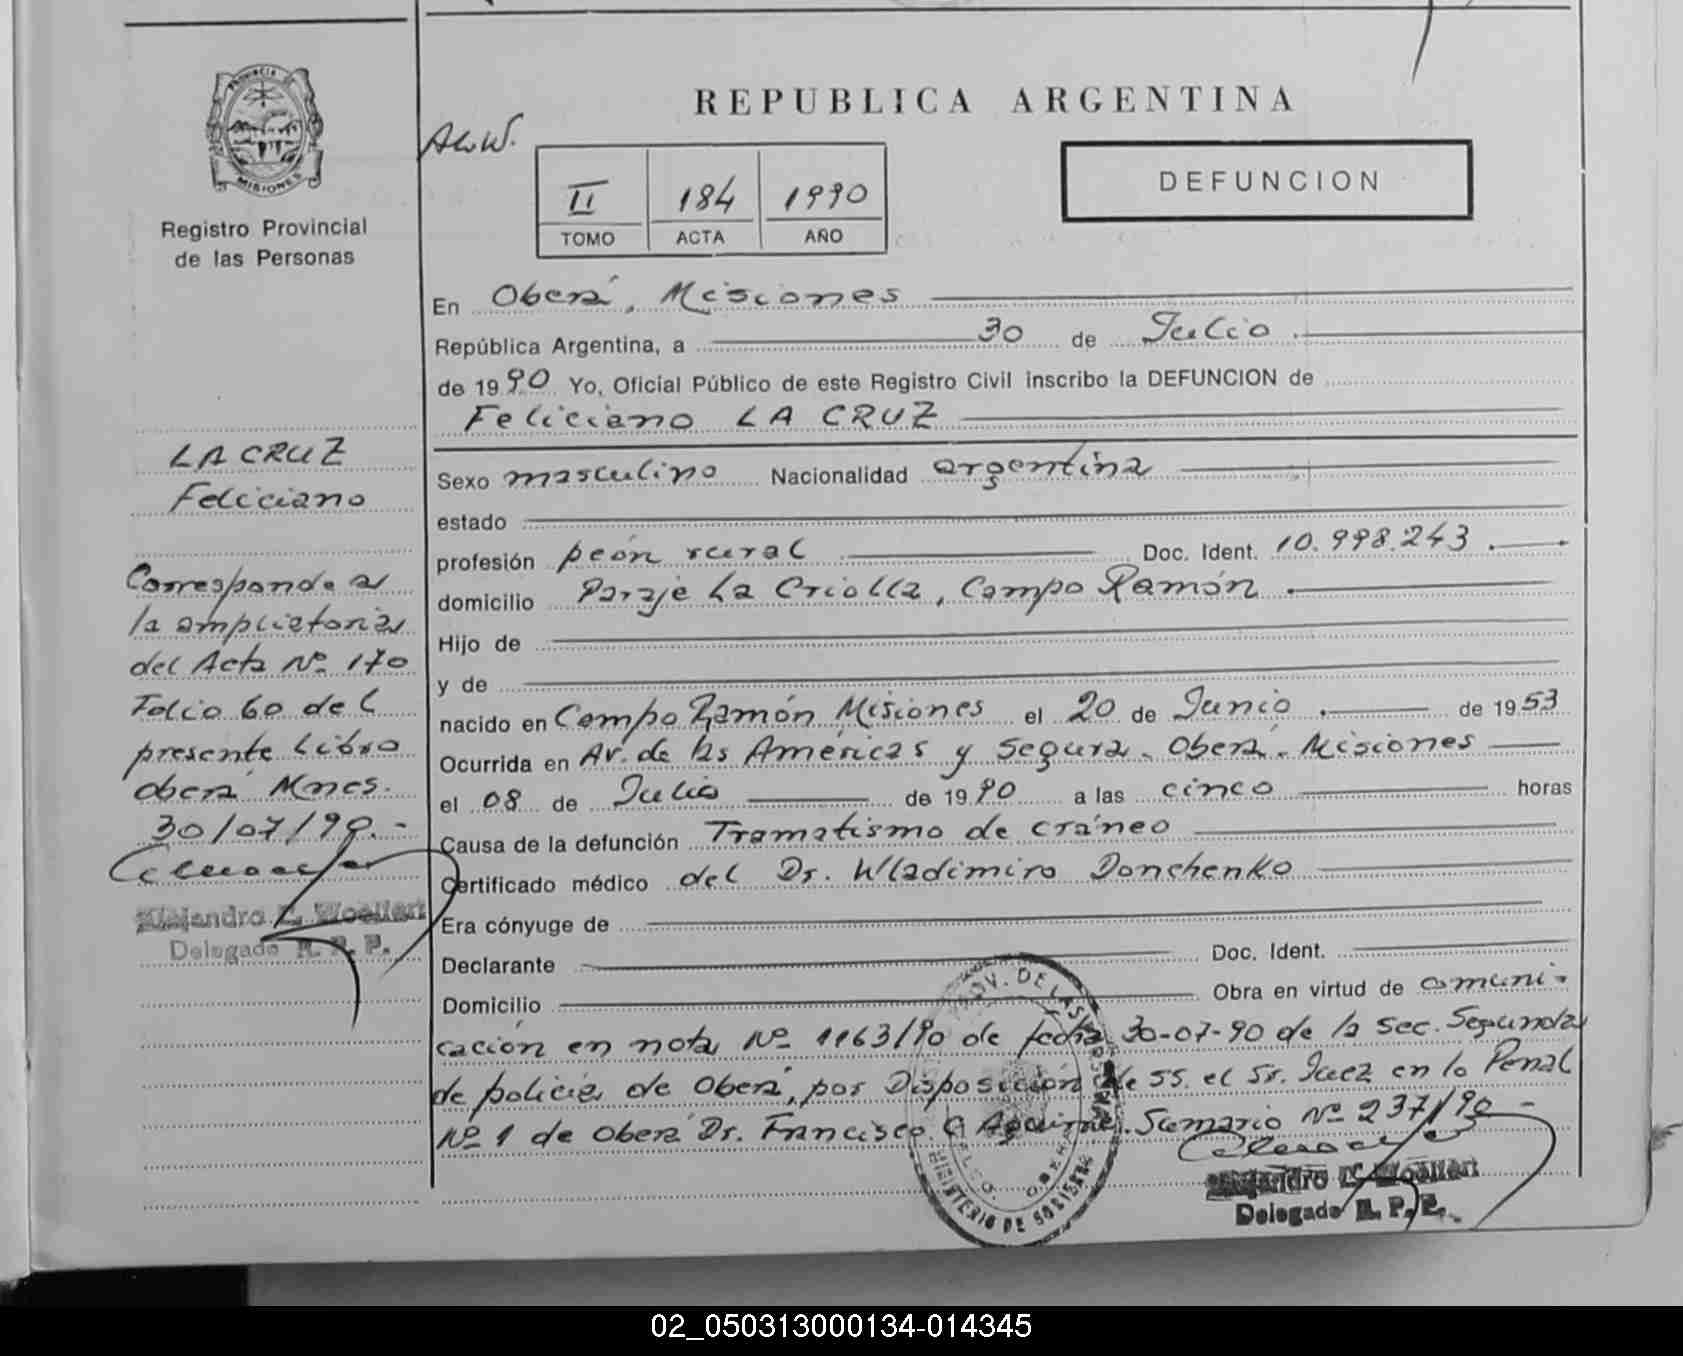 PROVINCIA DE
MISIONES
Registro Provincial
de las Personas
LA CRUZ
Feliciano
Corresponde a
la ampliatoria
del Acta Nº 170
Folio 60 del
presente Libro
Oberá Mnes.
30/07/90.-
Alejandro L. Woelfert
Delegado R. P. P.
REPUBLICA ARGENTINA
AlW.
II 184 1990
TOMO ACTA AÑO
DEFUNCION
En Oberá, Misiones
República Argentina, a 30 de Julio
de 1990 Yo, Oficial Público de este Registro Civil inscribo la DEFUNCION de
Feliciano LA CRUZ
Sexo masculino Nacionalidad argentina
estado
profesión peón rural Doc. Ident. 10.998.243
domicilio Paraje La Criolla, Campo Ramón
Hijo de
y de
nacido en Campo Ramón Misiones el 20 de Junio de 1953
Ocurrida en Av. de las Américas y Segura. Oberá. Misiones
el 08 de Julio de 1990 a las cinco horas
Causa de la defunción Tramatismo de cráneo
Certificado médico del Dr. Wladimiro Donchenko
Era cónyuge de
Declarante Doc. Ident.
Domicilio Obra en virtud de comuni-
cación en nota Nº 1163/90 de fecha 30-07-90 de la Sec. Segunda
de policía de Oberá, por Disposición de SS. el Sr. Juez en lo Penal
Nº 1 de Oberá Dr. Francisco C. Aguirre. Sumario Nº 237/90-
Alejandro L. Woelfert
Delegado R. P. P.
02_050313000134-014345